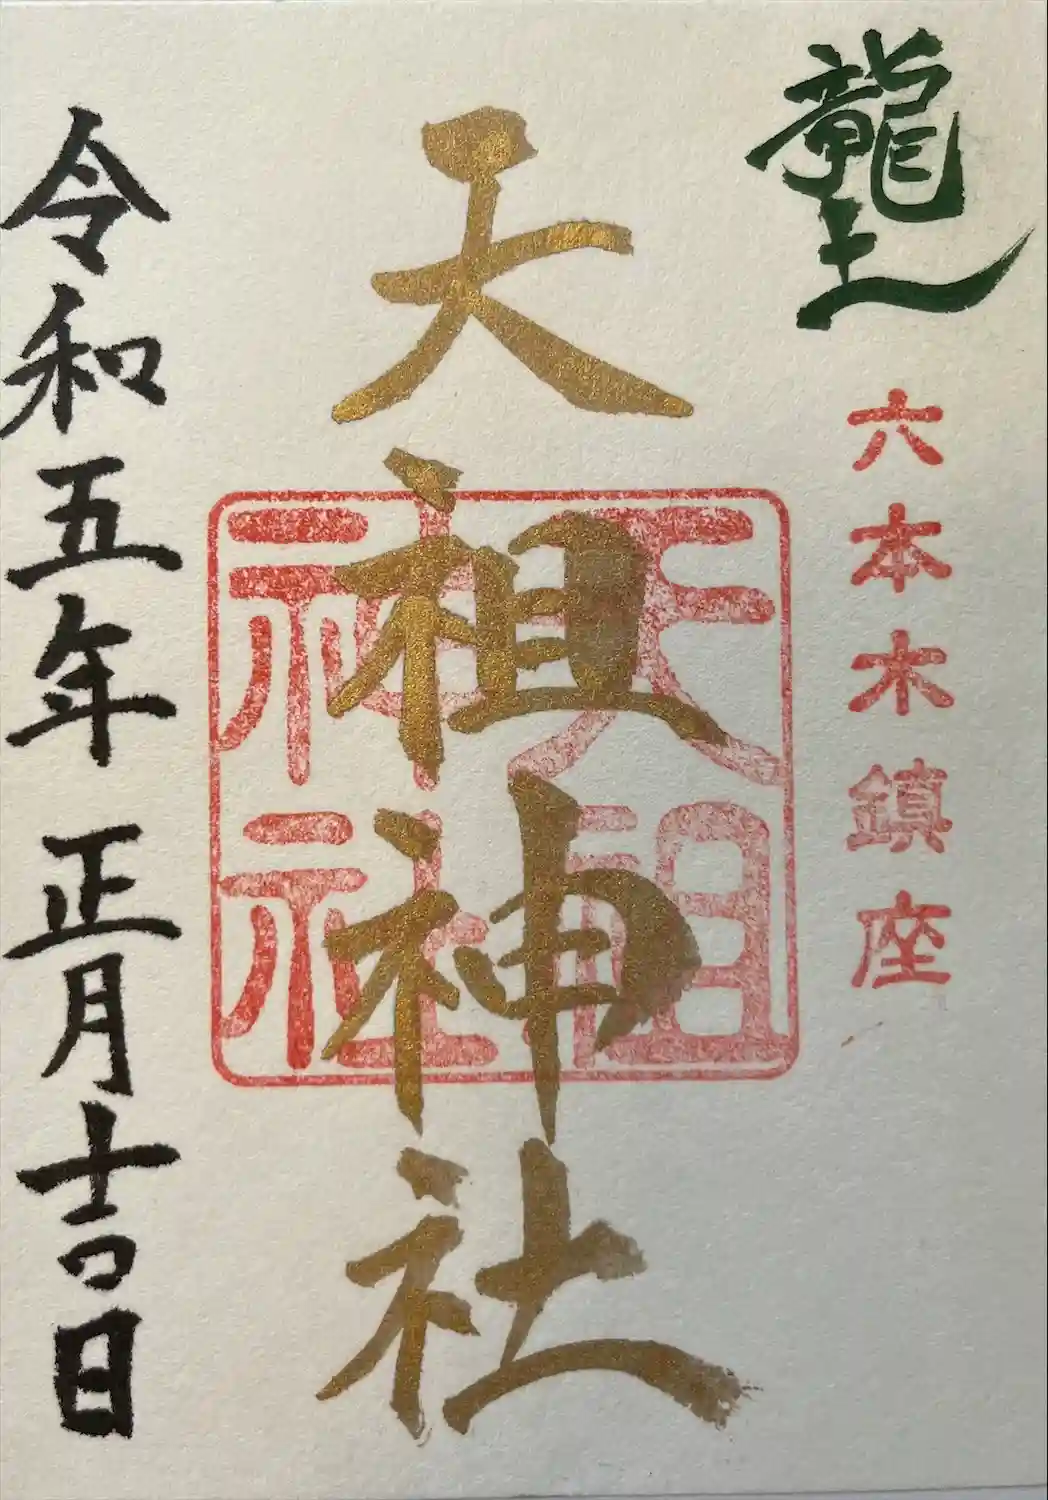 龍土
六本木鎮座
天祖神社
天祖神社
令和五年 正月吉日